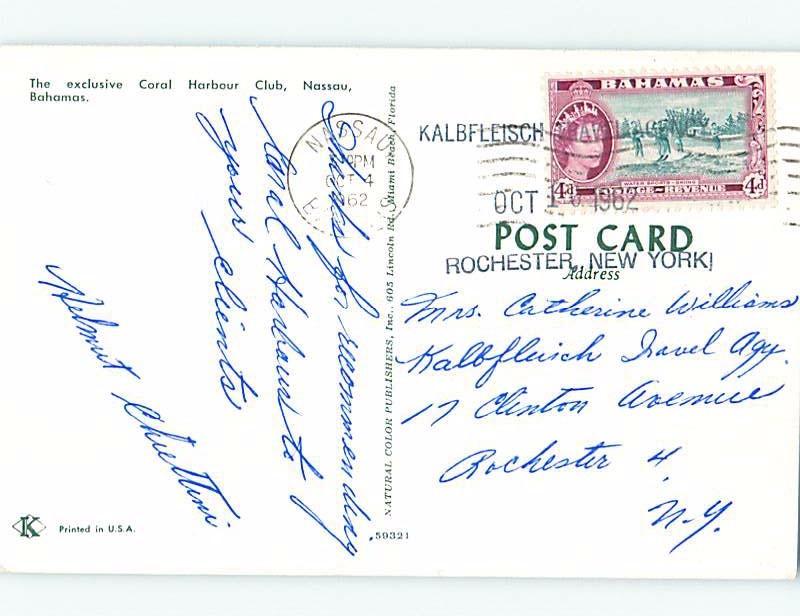 The exclusive Coral Harbour Club, Nassau,
Bahamas.
Thanks for recommending
Coral Harbour to
your clients
Helmut
Printed in U.S.A.
K
NATURAL COLOR PUBLISHERS, Inc., 605 Lincoln Rd., Miami Beach, Florida
59321
NASSAU
PM
OCT 4
1962
KALBFLEISCH
OCT 1 1962
ROCHESTER, NEW YORK
BAHAMAS
WATER SPORTS - SKIING
4d POSTAGE - REVENUE 4d
POST CARD
Address
Mrs. Catherine Williams
Kalbfleisch Travel Agy.
17 Clinton Avenue
Rochester 4
N.Y.